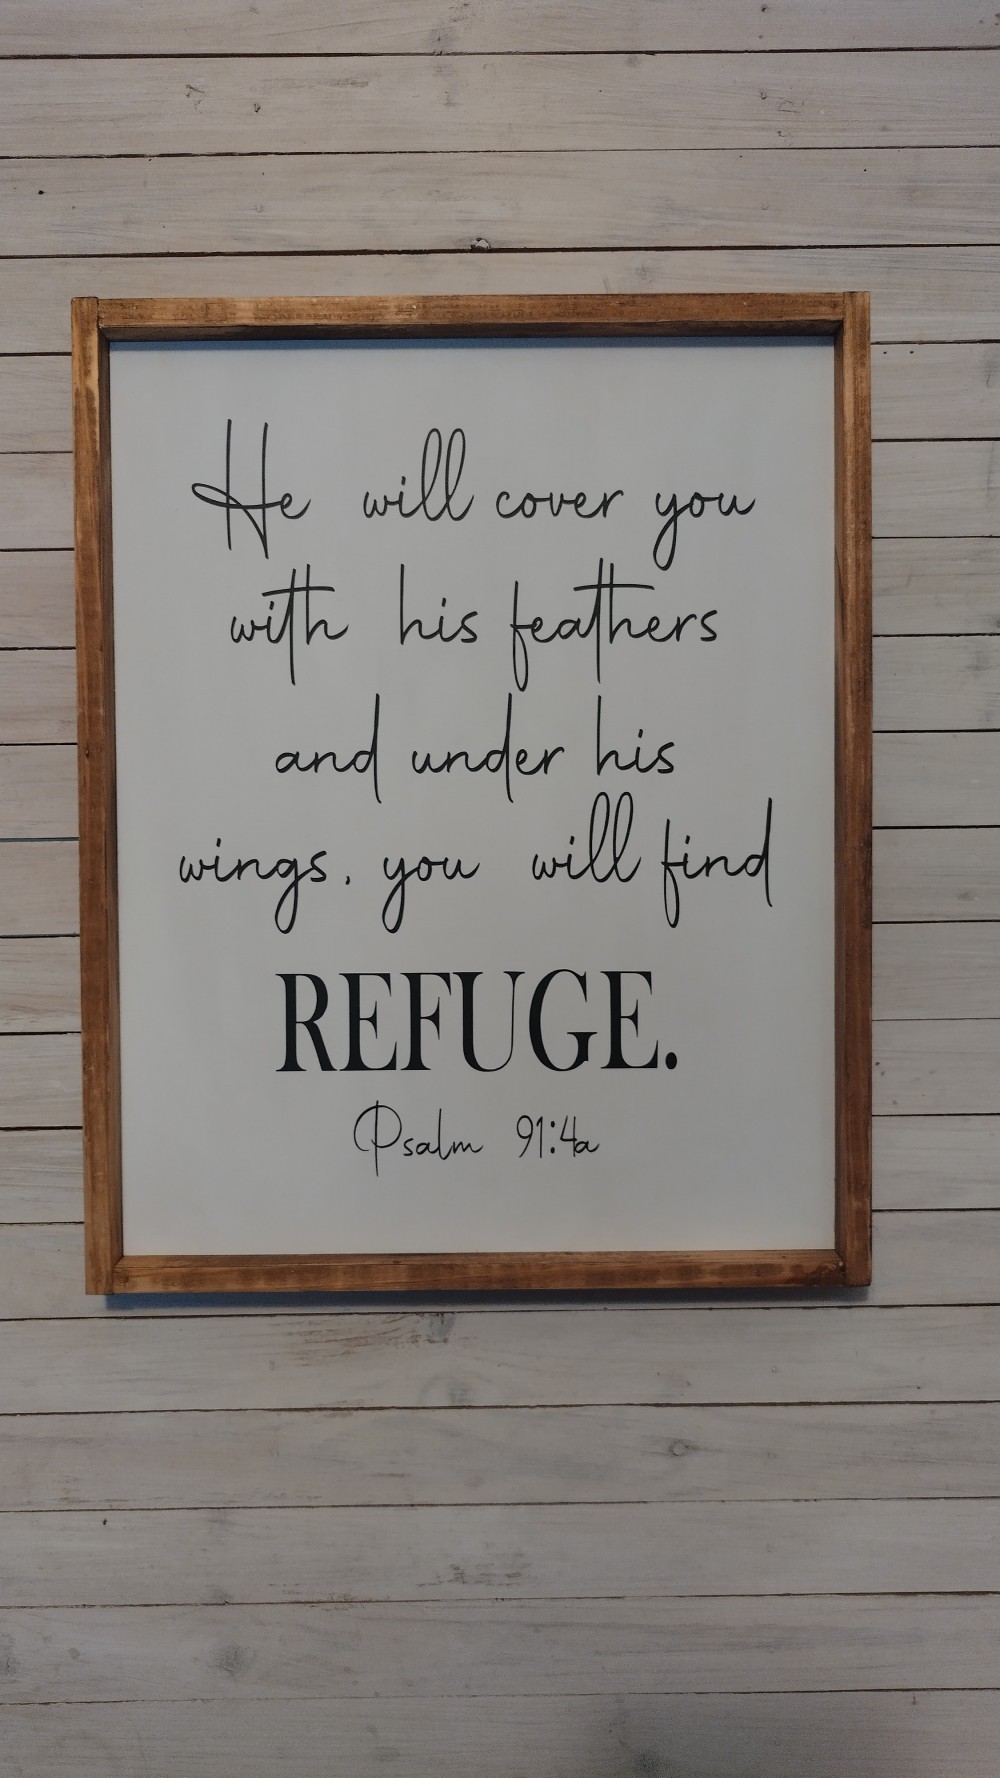 He will cover you
with his feathers
and under his
wings, you will find
REFUGE.
Psalm 91:4a